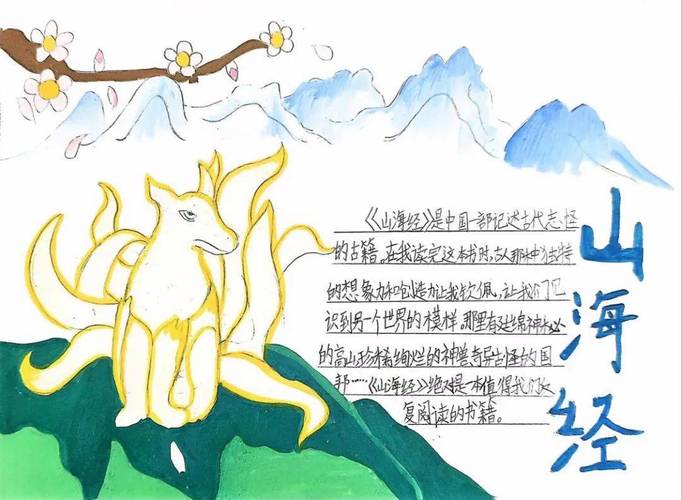 《山海经》是中国一部记述古代志怪
的古籍。在我读完这本书时,古人那种独特
的想象力和创造力让我钦佩,让我们见
识到另一个世界的模样。那里有连绵神秘
的高山珍稀绚烂的神兽奇异古怪的国
邦……《山海经》绝对是一本值得我们反
复阅读的书籍。
山海经